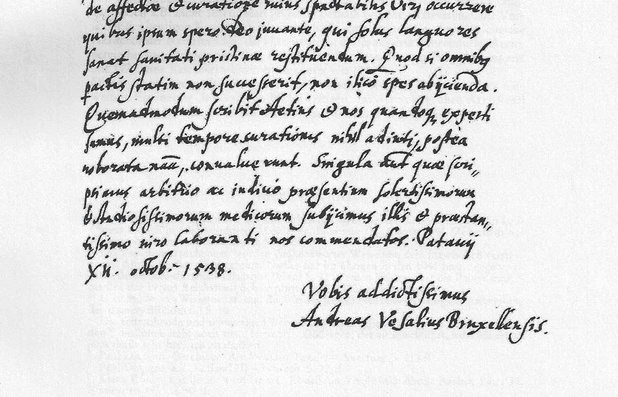 de affectae et curatione huius spectabilis viri occurrere
quibus ipsum spero Deo juvante, qui solus languores
sanat sanitati pristinae restituendum. Quod si omnibus
pactis statim non successerit, non ilicō spes abijcienda.
Quemadmodum scribit Aetius et nos quandoq; experti
sumus, multi tempore curationis nihil adiuti, postea
roborata naã, convaluerunt. Singula aũt quae scri„
psimus arbitrio ac iudicio praesentium solertissimorum
& studiosissimorum medicorum subijcimus illis & praestan„
tissimo viro laboranti nos commendatos. Patavij
XII. octob. 1538.
Vobis addictissimus
Andreas Vesalius Bruxellensis.